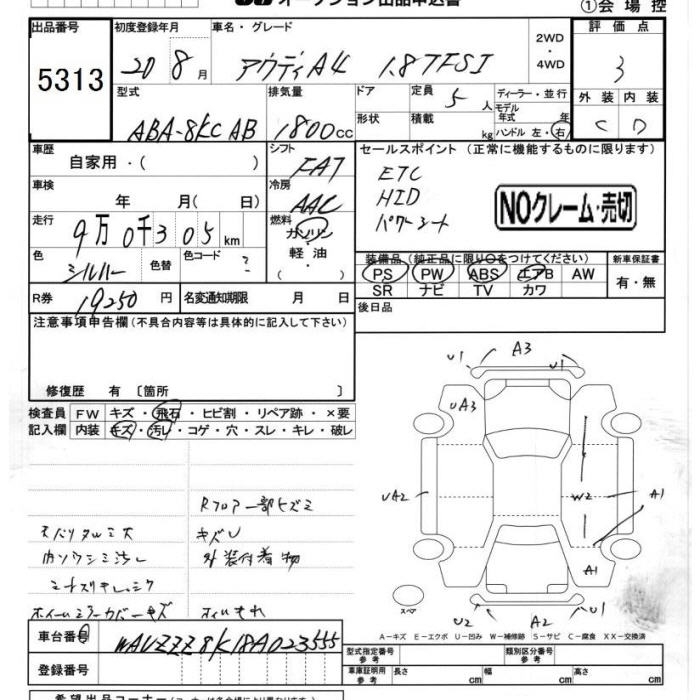 オークション出品申込書
①会場控
出品番号 5313
初度登録年月 20 8月
車名・グレード アウディA4 1.8TFSI
2WD・4WD
評価点 3
型式 ABA-8KCAB
排気量 1800cc
ドア 形状
定員 5人
積載 kg
ディーラー・並行
モデル年式 年
ハンドル 左・右
外装 C 内装 D
車歴 自家用・( )
シフト FAT
セールスポイント (正常に機能するものに限ります)
ETC
HID
パワーシート
NOクレーム・売切
車検 年 月( 日)
冷房 AAC
走行 9万0千305km
燃料 ガソリン・軽油・
色 シルバー 色替 色コード ?
装備品 (純正品に限り○をつけてください)
新車保証書 有・無
PS PW ABS エアB AW
SR ナビ TV カワ
R券 19250円 名変通知期限 月 日
後日品
注意事項申告欄 (不具合内容等は具体的に記入して下さい)
修復歴 有 〔箇所 〕
検査員記入欄
FW キズ・飛石・ヒビ割・リペア跡・×要
内装 キズ・汚レ・コゲ・穴・スレ・キレ・破レ
Rフロアー部ヒズミ
キズU
外装付着物
オイルもれ
U1 A3 U1
UA3
UA2 W2 A1
A1
スペア
U2 A2 U1
A-キズ E-エクボ U-凹み W-補修跡 S-サビ C-腐食 XX-交換済
車台番号 WAUZZZ8K18A023555
登録番号
型式指定番号 参考 類別区分番号 参考
車庫証明用 参考 長さ cm 幅 cm 高さ cm
希望出品コーナー